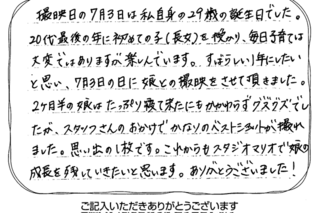 撮映日の7月3日は私自身の29歳の誕生日でした。
20代最後の年に初めての子(長女)を授かり、毎日子育ては
大変ではありますが楽んでいます。すばらしい1年にしたい
と思い、7月3日の日に娘との撮映をさせて頂きました。
2ヶ月半の娘はたっぷり寝て来たにもかかわらずグズグズでし
たが、スタッフさんのおかげでかなりのベストショットが撮れ
ました。思い出の1枚です。これからもスタジオマリオで娘の
成長を残していきたいと思います。ありがとうございました!
ご記入いただきありがとうございます